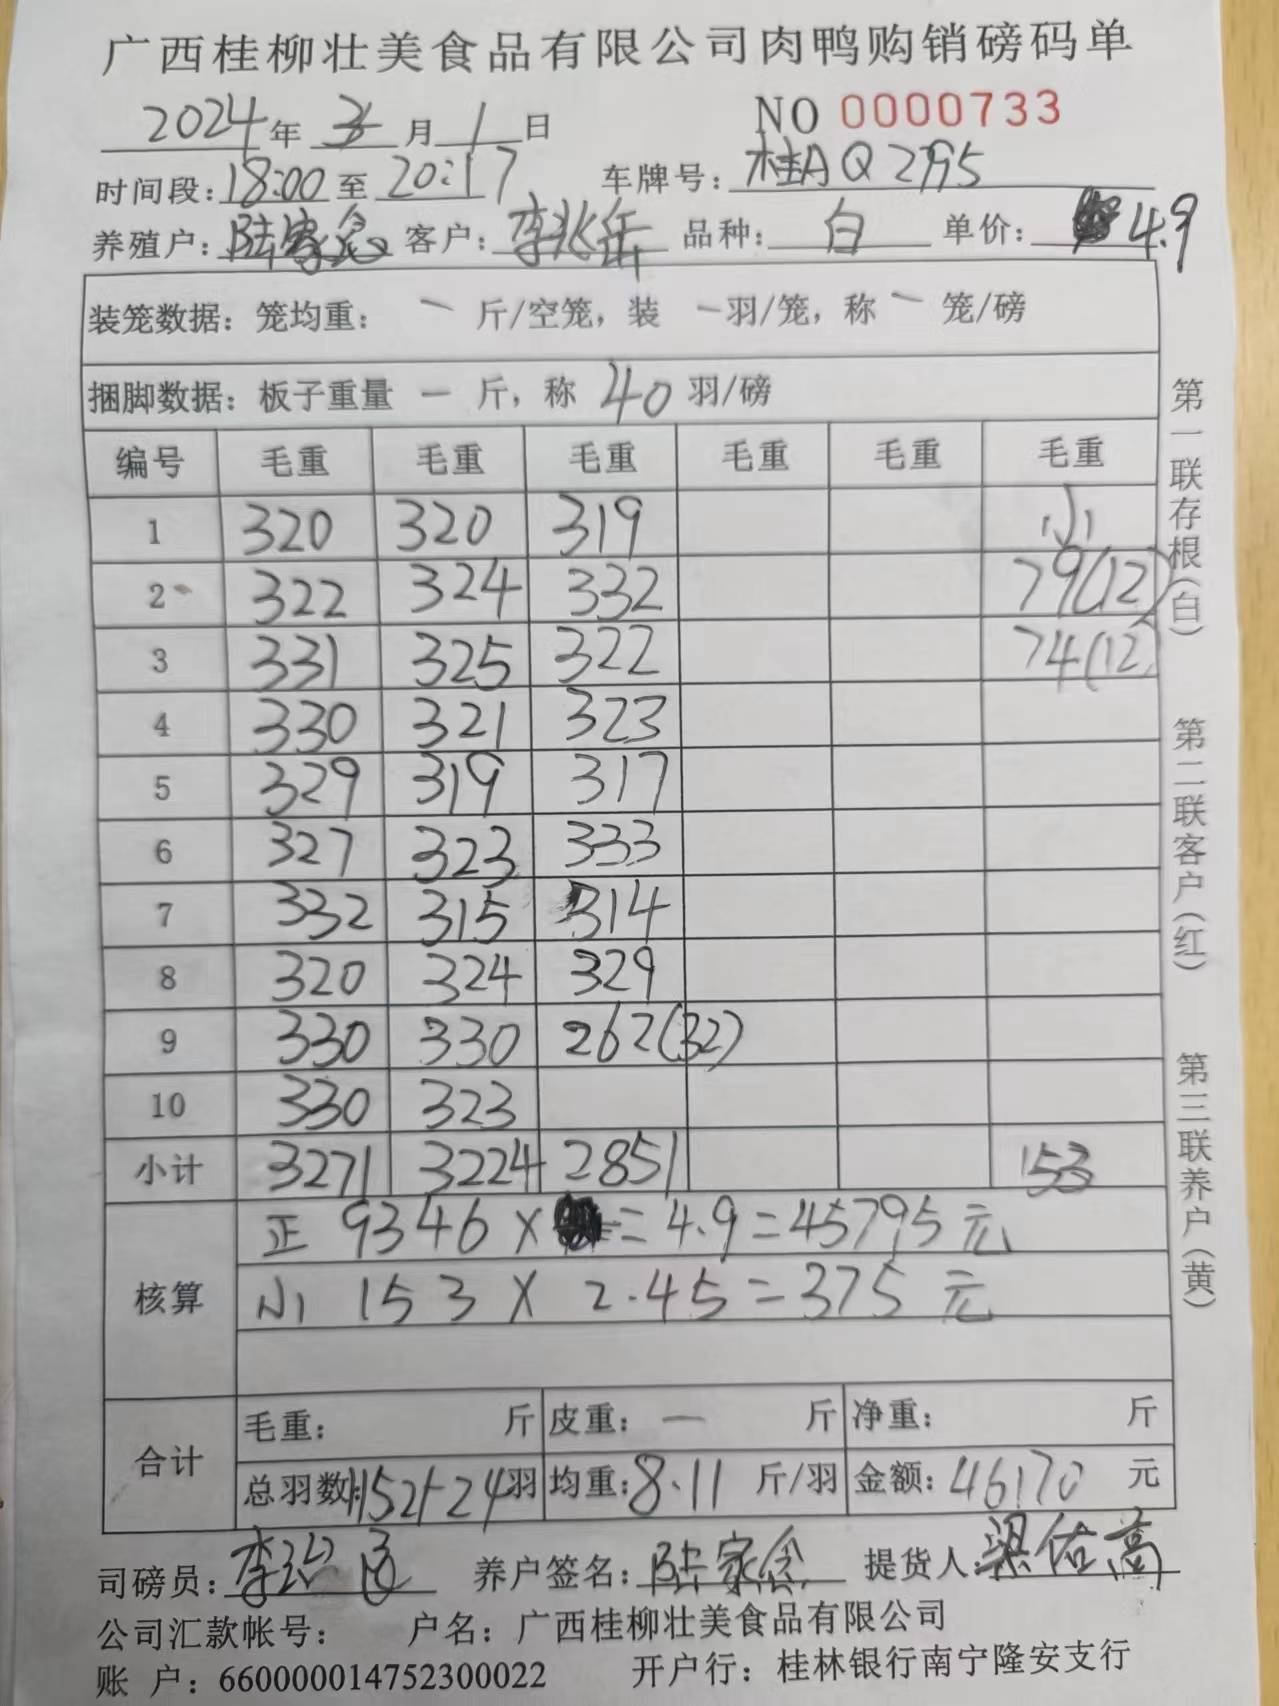 广西桂柳壮美食品有限公司肉鸭购销磅码单
2024年 3月 1日 NO 0000733
时间段:18:00至20:17 车牌号:桂AQ2795
养殖户:陆家念 客户:李兆岳 品种:白 单价:4.9
装笼数据:笼均重: 一 斤/空笼,装 一羽/笼,称 一 笼/磅
捆脚数据:板子重量 一 斤,称 40 羽/磅
编号 毛重 毛重 毛重 毛重 毛重 毛重
1 320 320 319 小
2 322 324 332 79(12)
3 331 325 322 74(12)
4 330 321 323
5 329 319 317
6 327 323 333
7 332 315 314
8 320 324 329
9 330 330 262(32)
10 330 323
小计 3271 3224 2851 153
核算
正 9346 × = 4.9=45795元
小 153 × 2.45=375元
合计
毛重: 斤 皮重: 一 斤 净重: 斤
总羽数:1152+24羽 均重:8.11 斤/羽 金额:46170 元
司磅员:李 养户签名:陆家念 提货人:梁佑高
公司汇款帐号: 户名:广西桂柳壮美食品有限公司
账 户:660000014752300022 开户行:桂林银行南宁隆安支行
第一联存根(白)
第二联客户(红)
第三联养户(黄)